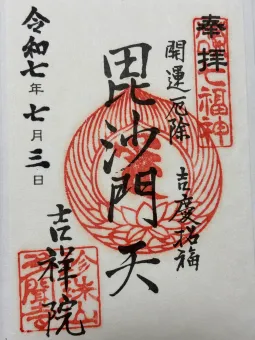 奉拝
七福神
開運厄除
毘沙門天
吉慶招福
令和七年七月三日
吉祥院